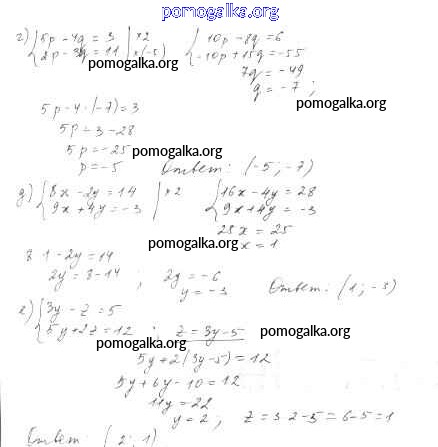 pomogalka.org
г) { 5p - 4q = 3 | × 2
2p - 3q = 11 | × (-5)
{ 10p - 8q = 6
-10p + 15q = -55
pomogalka.org
7q = -49
q = -7 ;
5p - 4 · (-7) = 3
5p = 3 - 28
5p = -25
pomogalka.org
p = -5
Ответ: (-5; -7)
д) { 8x - 2y = 14 | × 2
9x + 4y = -3
{ 16x - 4y = 28
9x + 4y = -3
25x = 25
pomogalka.org
x = 1
8 · 1 - 2y = 14
2y = 8 - 14 ; 2y = -6
y = -3
Ответ: (1; -3)
е) { 3y - z = 5
5y + 2z = 12 ; z = 3y - 5
pomogalka.org
pomogalka.org
5y + 2(3y - 5) = 12
5y + 6y - 10 = 12
11y = 22
y = 2 ; z = 3·2 - 5 = 6 - 5 = 1
Ответ: (2; 1)